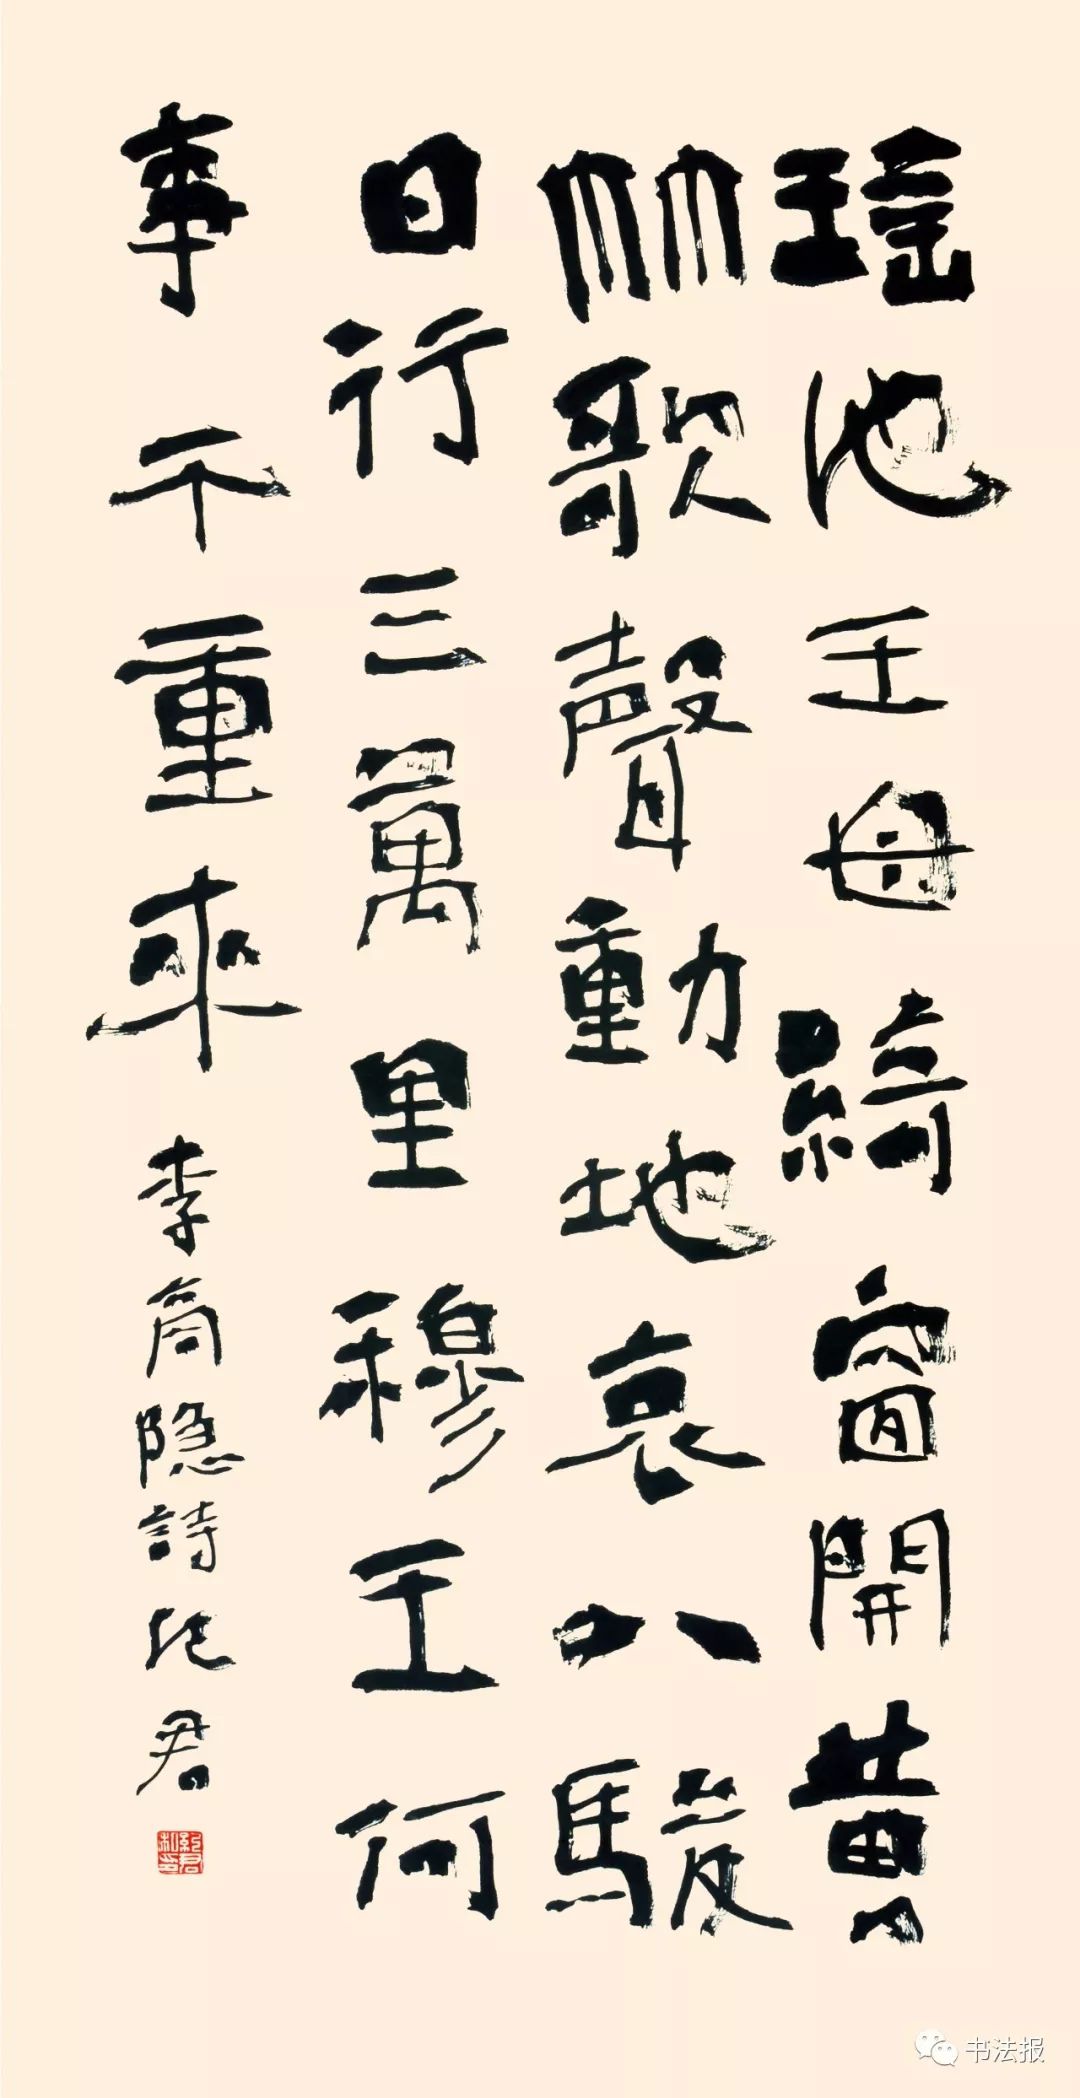 瑶池王母綺窗開黄
竹歌聲動地哀八駿
日行三萬里穆王何
事不重來 李商隐詩 纪君
书法报